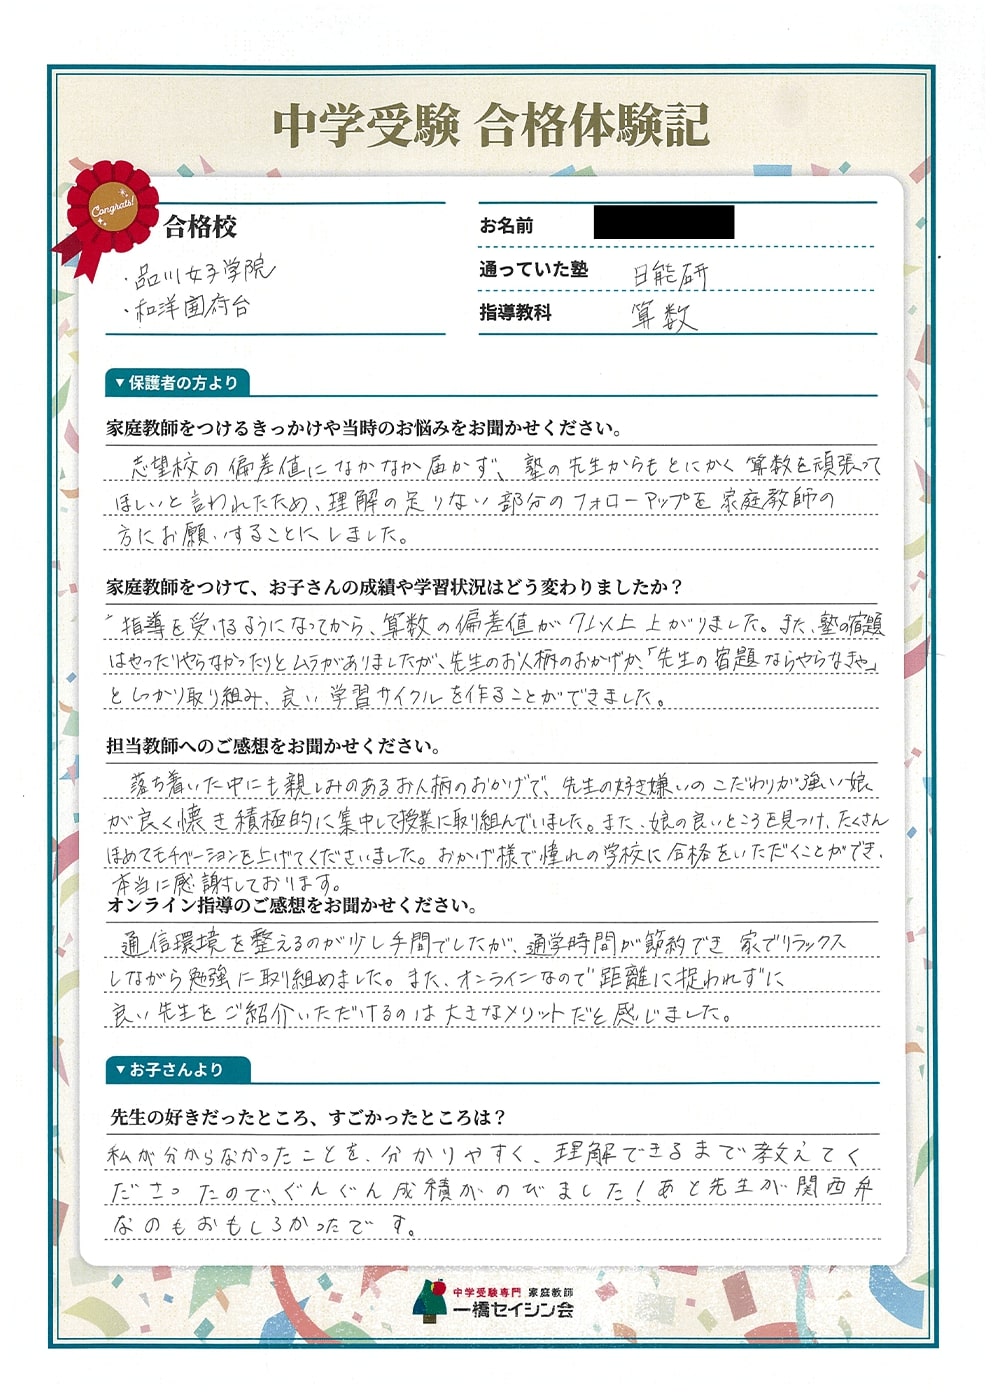 中学受験 合格体験記
Congrats!
合格校
・品川女子学院
・和洋国府台
お名前
通っていた塾 日能研
指導教科 算数
▼保護者の方より
家庭教師をつけるきっかけや当時のお悩みをお聞かせください。
志望校の偏差値になかなか届かず、塾の先生からもとにかく算数を頑張って
ほしいと言われたため、理解の足りない部分のフォローアップを家庭教師の
方にお願いすることにしました。
家庭教師をつけて、お子さんの成績や学習状況はどう変わりましたか？
指導を受けるようになってから、算数の偏差値が7以上上がりました。また、塾の宿題
はやったりやらなかったりとムラがありましたが、先生のお人柄のおかげか、「先生の宿題ならやらなきゃ」
としっかり取り組み、良い学習サイクルを作ることができました。
担当教師へのご感想をお聞かせください。
落ち着いた中にも親しみのあるお人柄のおかげで、先生の好き嫌いのこだわりが強い娘
が良く懐き積極的に集中して授業に取り組んでいました。また、娘の良いところを見つけ、たくさん
ほめてモチベーションを上げてくださいました。おかげ様で憧れの学校に合格をいただくことができ、
本当に感謝しております。
オンライン指導のご感想をお聞かせください。
通信環境を整えるのが少し手間でしたが、通学時間が節約でき 家でリラックス
しながら勉強に取り組めました。また、オンラインなので距離に捉われずに
良い先生をご紹介いただけるのは大きなメリットだと感じました。
▼お子さんより
先生の好きだったところ、すごかったところは？
私が分からなかったことを、分かりやすく、理解できるまで教えてく
ださったので、ぐんぐん成績がのびました！あと先生が関西弁
なのもおもしろかったです。
中学受験専門 家庭教師
一橋セイシン会